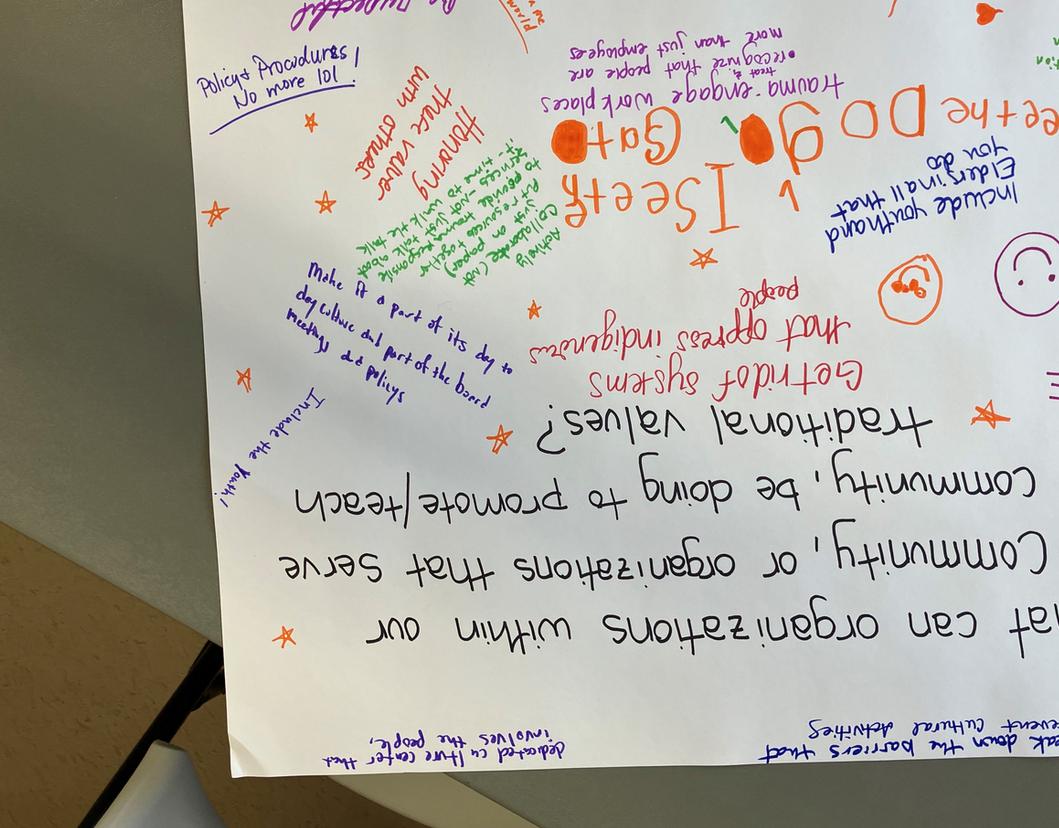 dedicated culture center that
involves the people,
eak down the barriers that
event cultural activities
at can organizations within our
Community, or organizations that serve
community, be doing to promote/teach
traditional values?
Get rid of systems
that oppress indigenous
people
Include the Youth!
Make it a part of its day to
day culture and part of the board
meetings and policys
Actively
Collaborate (not
just on paper)
Put resources together
to provide trauma responsible
services - not just talk about
it - time to walk the talk
I See th
Gato
ee the DOg
Include youth and
Elders in all that
you do
Honoring
there values
with others
trauma-engage workplaces
• recognize that people are
treat &
more than just employees
Policy & Procudures!
No more 101!
Be respectful